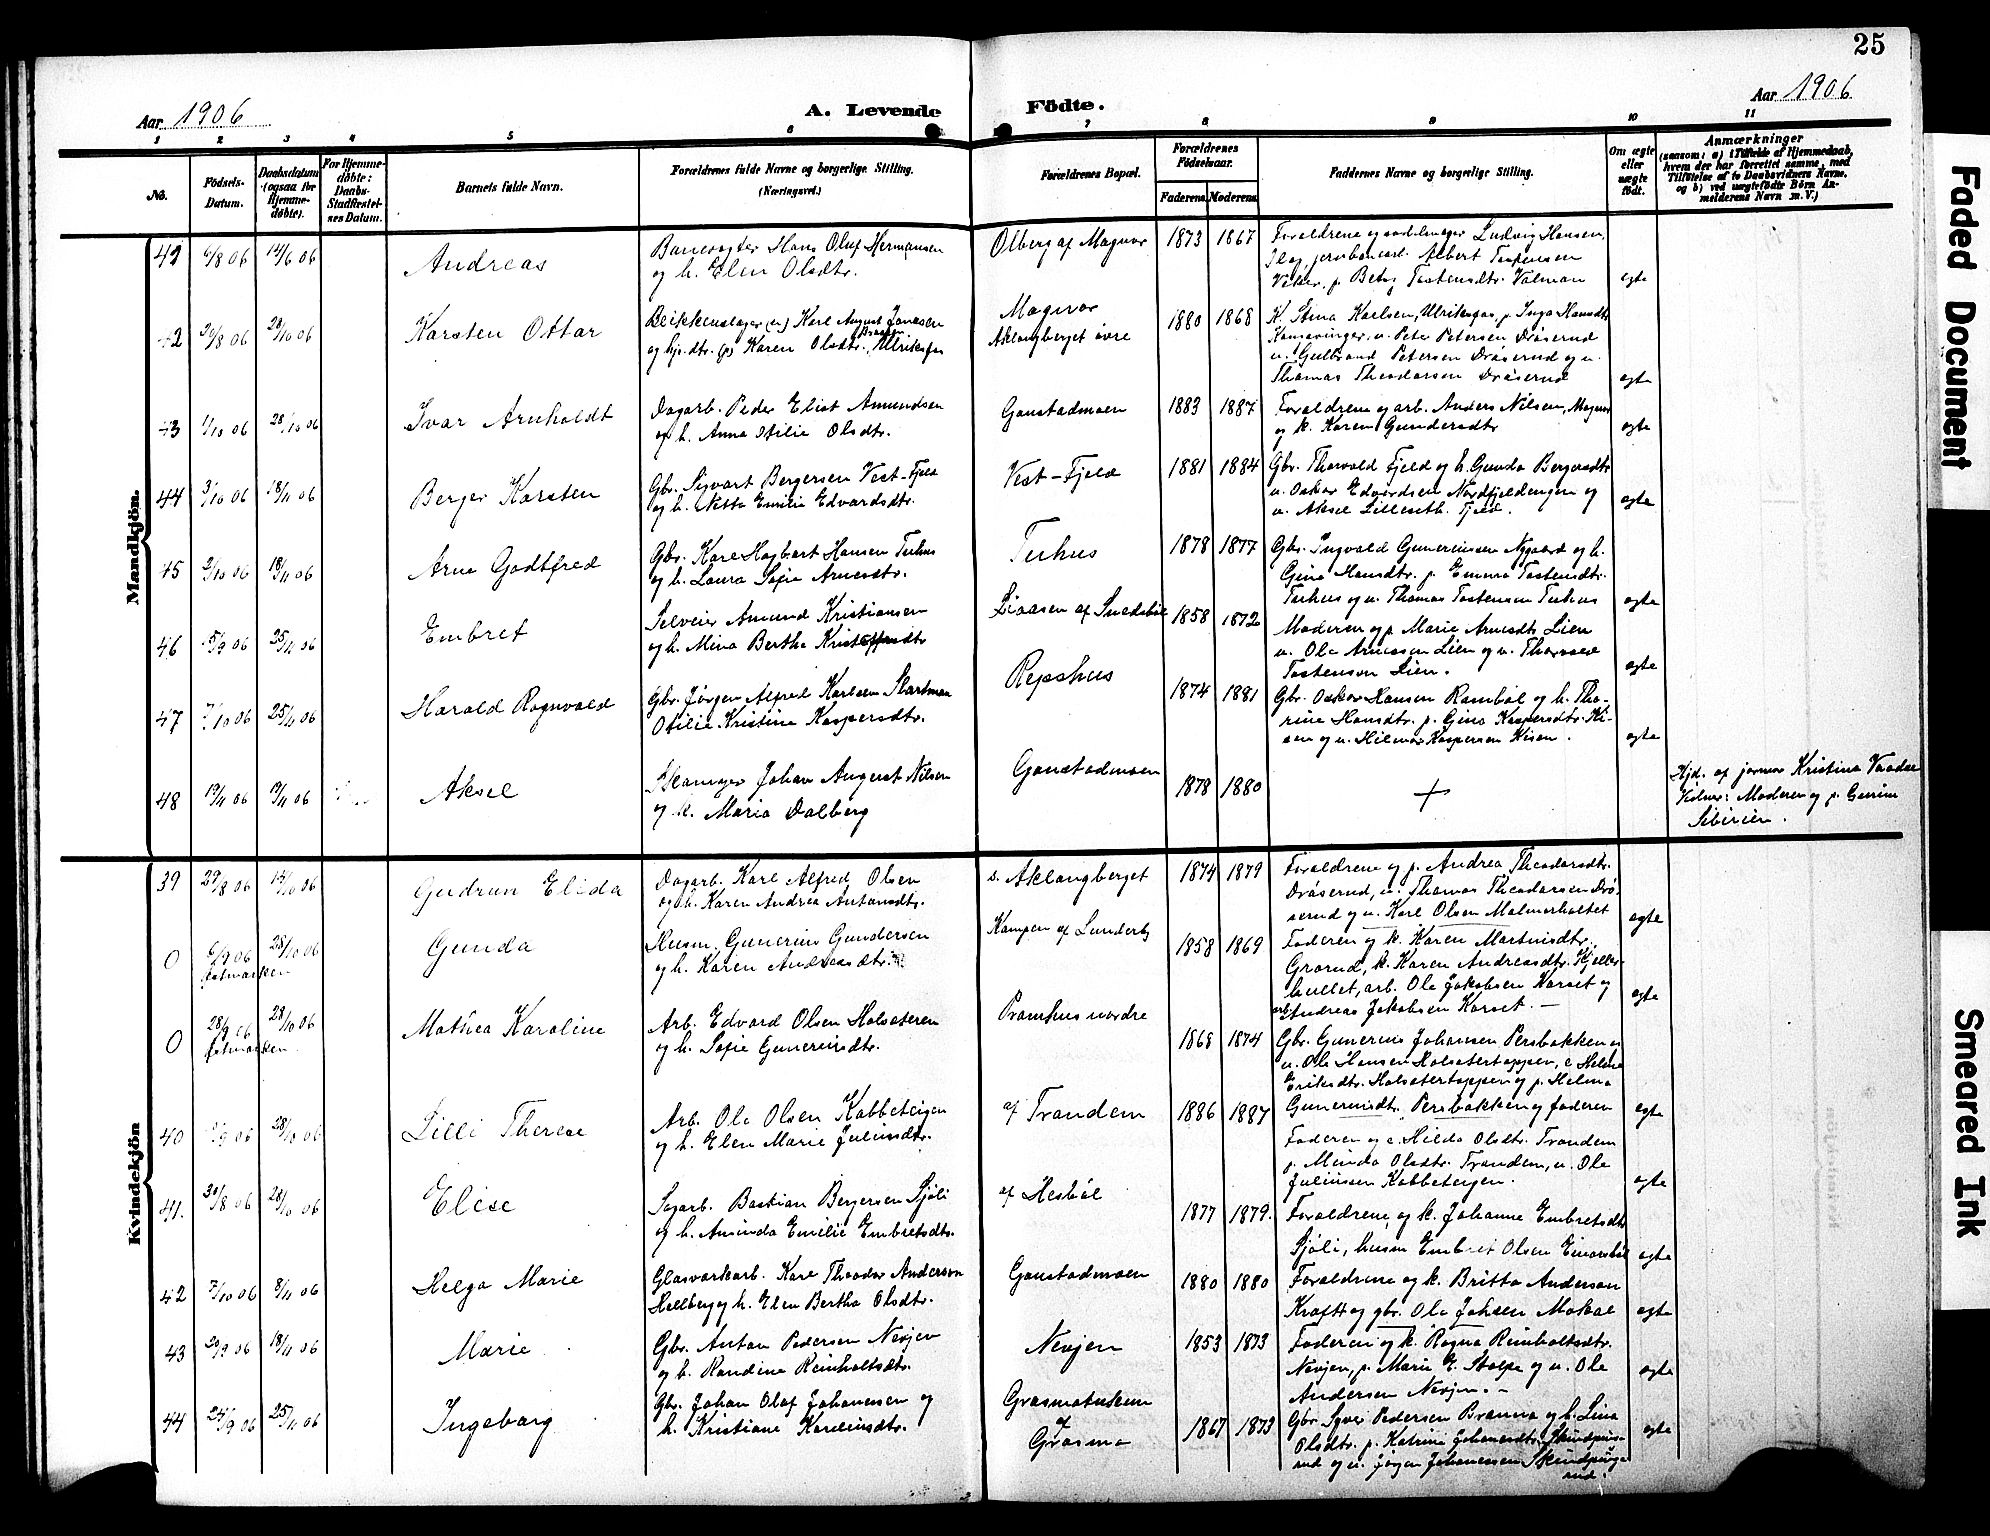 25
Aar 1906
A. Levende
Födte.
Aar 1906
1 2 3 4 5 6 7 8 9 10 11
No.
Födsels-
Datum.
Daabsdatum
(ogsaa for
Hjemme-
döbte).
For Hjemme-
döbte:
Daabs-
Stadfæstel-
ses Datum.
Barnets fulde Navn.
Forældrenes fulde Navne og borgerlige Stilling.
(Næringsvei.)
Forældrenes Bopæl.
Forældrenes
Födselsaar.
Faderens Moderens
Faddernes Navne og borgerlige Stilling.
Om ægte
eller
uægte
födt.
Anmærkninger
(saasom: a) i Tilfælde af Hjemmedaab,
hvem der har forrettet samme, med
Tilföielse af to Daabsvidners Navne,
og b) ved uægtefödte Börn An-
melderens Navn m. V.)
Mandkjön.
6/8 06
Andreas
Hans Oluf Hermansen
og h. Elen Olsdtr.
Olberg af Magnor
1873 1867
Forældrene og Ludvig Hansen,
Albert
p. Betsy Tostensdtr. Valman
egte
42 20/8 06 28/10 06
Karsten Ottar
Blikkenslager (u) Karl August Jonasen
og hjs. dtr. (p) Karen Olsdtr.
Magnor
Aklangberget övre
1880 1868
K. Stina Karlsen, p. Inga Hansdtr.
u. Peter Petersen Dråserud
u. Gulbrand Petersen Dråserud og u.
Thomas Theodorsen Dråserud
egte
43 1/10 06 28/10 06
Ivar Arnholdt
Dagarb. Peder Eliot Amundsen
og h. Anna Otilie Olsdtr.
Gaustadmoen
1883 1887
Forældrene og arb. Anders Nilsen, Magnor
og k. Karen Gundersdtr
egte
44 3/10 06 18/11 06
Berger Karsten
Gbr. Sigvart Bergersen Vest-Fjeld
og h. Netta Emilie Edvardsdtr.
Vest-Fjeld
1881 1884
Gbr. Thorvald Fjeld og h. Gunda Bergersdtr
u. Oskar Edvardsen Nordfjeldengen og
u. Aksel Lilleseth. Fjeld.
egte
45 2/10 06 18/11 06
Arne Godtfred
Gbr. Karl Hagbart Hansen Terhus
og h. Laura Sofie Arnesdtr.
Terhus
1878 1877
Gbr. Ingvald Guneriussen Nygaard og h.
Gina Hansdtr. p. Emma Tostensdtr.
Terhus og u. Thomas Tostensen Terhus
egte
46 5/9 06 25/11 06
Embret
Selveier Amund Kristiansen
og h. Mina Bertha Kristoffersdtr
Liaasen af Snedsböl
1858 1872
Moderen og p. Marie Arnesdtr Lien
u. Ole Arnessen Lien og u. Thorvald
Tostenson Lien.
egte
47 7/10 06 25/11 06
Harald Ragnvald
Gbr. Jörgen Alfred Karlsen
Otilie Kristine Kaspersdtr.
Repshus
1874 1881
Gbr. Oskar Hansen Ramböl og h. Tho-
rine Hansdtr. p. Gina Kaspersdtr. Ki-
sen og u. Hilmar Kaspersen Kisen.
egte
48 19/11 06 19/11 06
Aksel
Johan August Nilsen
og h. Maria Dalberg
Gaustadmoen
1878 1880
+
Hjd. af jormor Kristina Vaadse
Vidner: Moderen og p. Gerine
Siberien.
Kvindekjön
39 29/8 06 15/10 06
Gudrun Elida
Dagarb. Karl Alfred Olsen
og h. Karen Andrea Antonsdtr.
s. Aklangberget
1874 1879
Forældrene og p. Andrea Theodorsdtr.
Dråserud, u. Thomas Theodorsen Drå-
serud og u. Karl Olsen Malmerholtet
egte
0 6/9 06 28/10 06
Gunda
Husm. Gunerius Gundersen
og h. Karen Andreasdtr.
Kampen af Lunderby
1858 1869
Faderen og k. Karen Martinsdtr.
Grorud, k. Karen Andreasdtr. Kjeller-
hullet, arb. Ole Jakobsen Karset og
arb. Andreas Jakobsen Karset. —
egte
0 28/9 06 28/10 06
Mathea Karoline
Arb. Edvard Olsen Holsæteren
og h. Sofie Gunerinsdtr.
Pramhus nordre
1868 1874
Gbr. Gunerius Johansen Persbakken
u. Ole Hansen Holsætertoppen, e Helene
Eriksdtr. Holsætertoppen og p. Helma
Gunerinsdtr. Persbakken og faderen
egte
40 28/10 06
Lilli Therese
Arb. Ole Olsen Kobbeteigen
og h. Elen Marie Juliusdtr.
af Trandem
1886 1887
Faderen og e. Hilda Olsdtr. Trandem
p. Minda Olsdtr. Trandem, u. Ole
Juliussen Kobbeteigen.
egte
41. 30/8 06 28/10 06
Elise
Sagarb. Bastian Bergersen Sjöli
og h. Aminda Emilie Embretsdtr.
af Hesböl
1877 1879.
Forældrene, og k. Johanne Embretsdtr
Sjöli, husm Embret Olsen
egte
42 7/10 06 8/11 06
Helga Marie
Glasværkarb. Karl Theodor Anderson
Hellberg og h. Elen Bertha Olsdtr.
Gaustadmoen
1880 1880
Forældrene og k. Britta Anderson
Krafft og gbr. Ole Johsen Makal
egte
43 20/9 06 18/11 06
Marie
Gbr. Anton Pedersen Nevjen
og h. Randine Reinholtsdtr.
Nevjen
1853 1873
Faderen og k. Ragna Reinholtsdtr.
Nevjen, p. Marie E. Stolpe og u. Ole
Andersen Nevjen. —
egte
44 24/9 06 25/11 06
Ingeborg
Gbr. Johan Olaf Johannesen og
h. Kristiane Karelinsdtr.
af
Grasmo
1867 1873
Gbr. Syver Pedersen Branna og h. Lina
Olsdtr. p. Katrine Johannesdtr.
og u. Jörgen Johannessen
egte
Faded Document
Smeared Ink